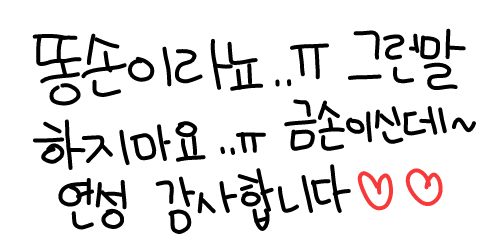 똥손이라뇨..ㅠ 그런말
하지마요..ㅠ 금손이신데~
연성 감사합니다♡♡